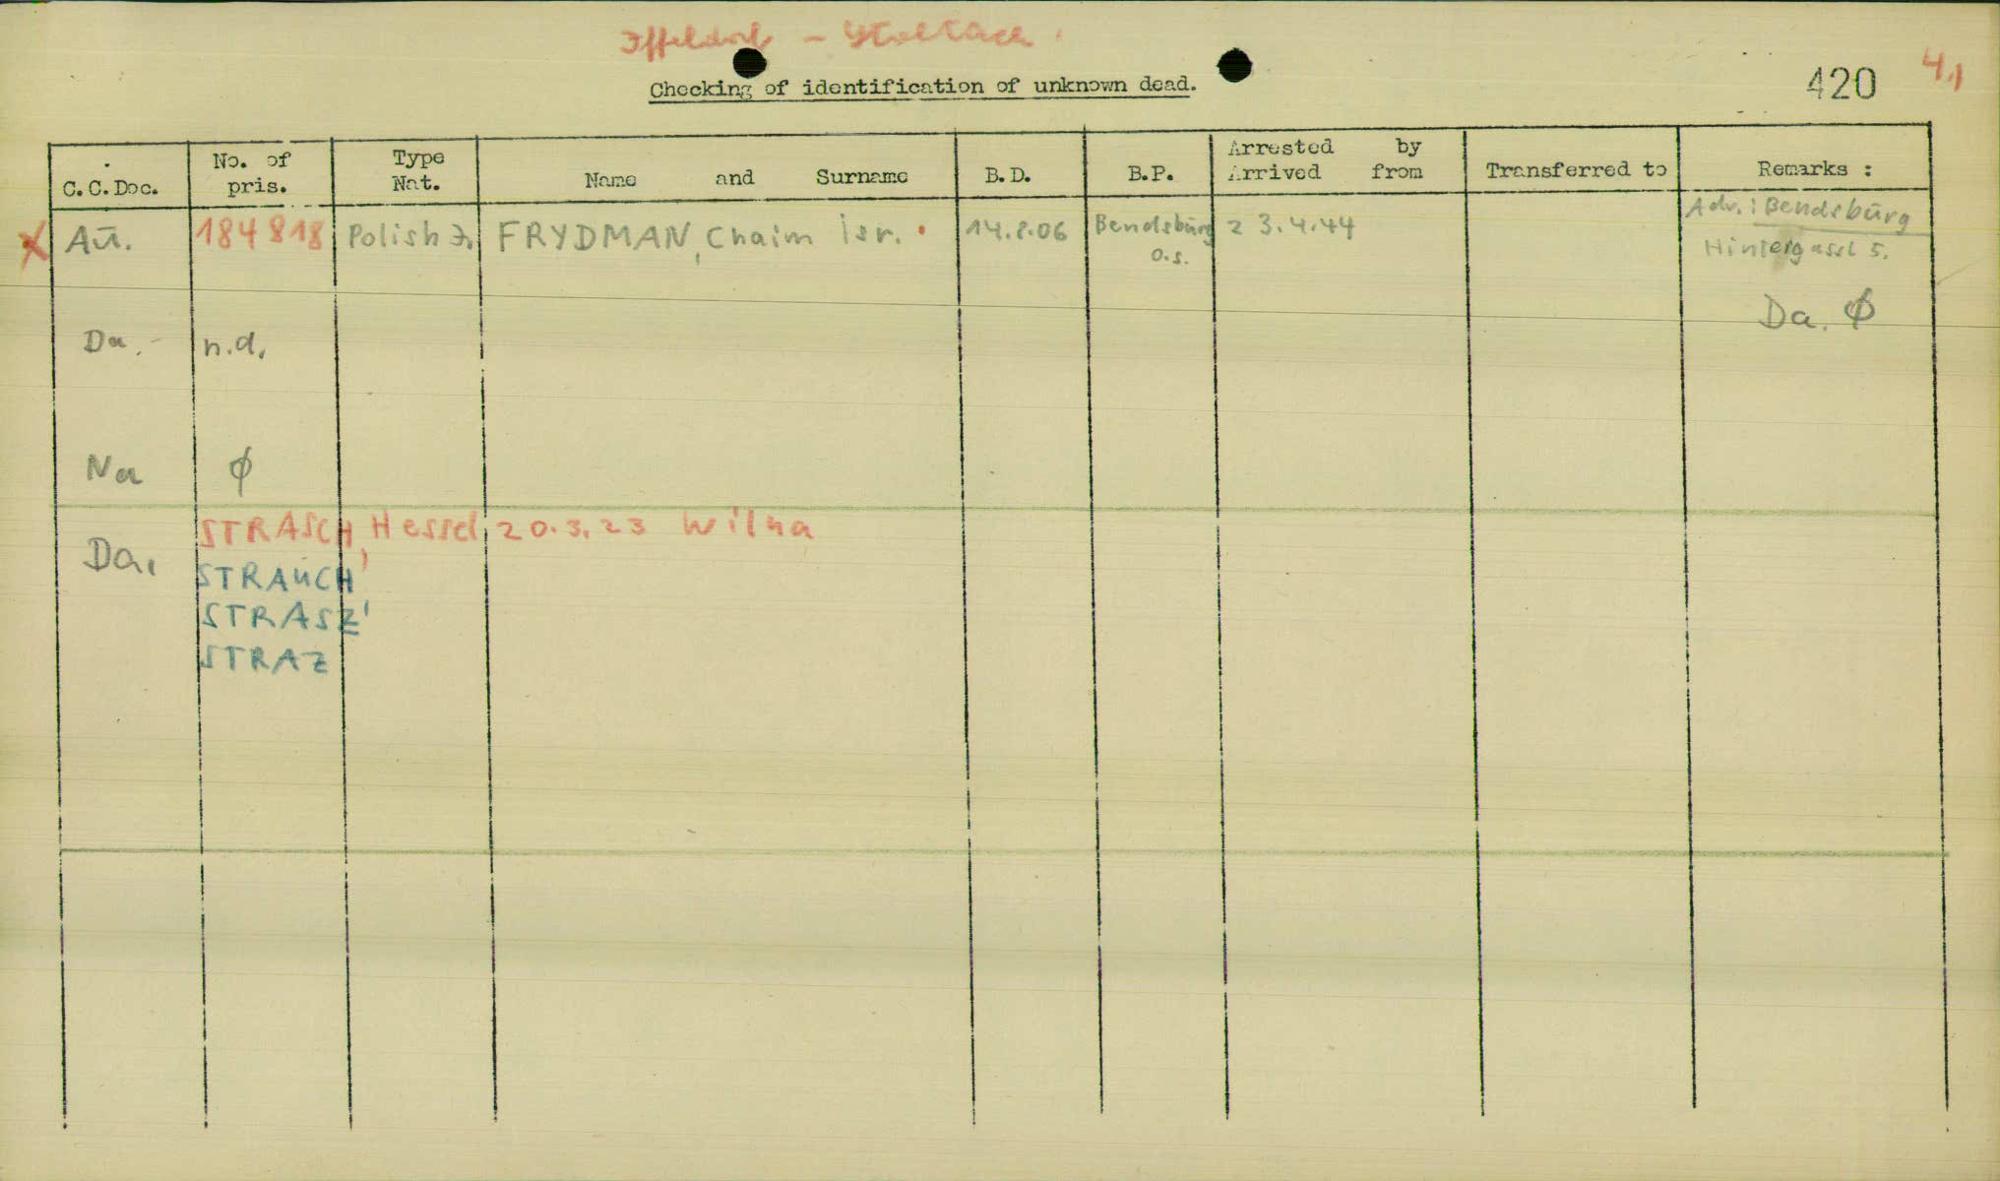 Iffeldorf - Staltach.
Checking of identification of unknown dead.
420 41
C.C.Doc.
No. of pris.
Type Nat.
Name and Surname
B.D.
B.P.
Arrested by
Arrived from
Transferred to
Remarks :
X Au. 184818 Polish J. FRYDMAN, Chaim isr. 14.8.06 Bendsburg o.s. 23.4.44
Adr.: Bendsburg
Hintergassl 5.
Da. Ø
Da.- n.d.
Na Ø
Da. STRASCH, Hessel 20.3.23 Wilna
STRAUCH
STRASZ
STRAZ